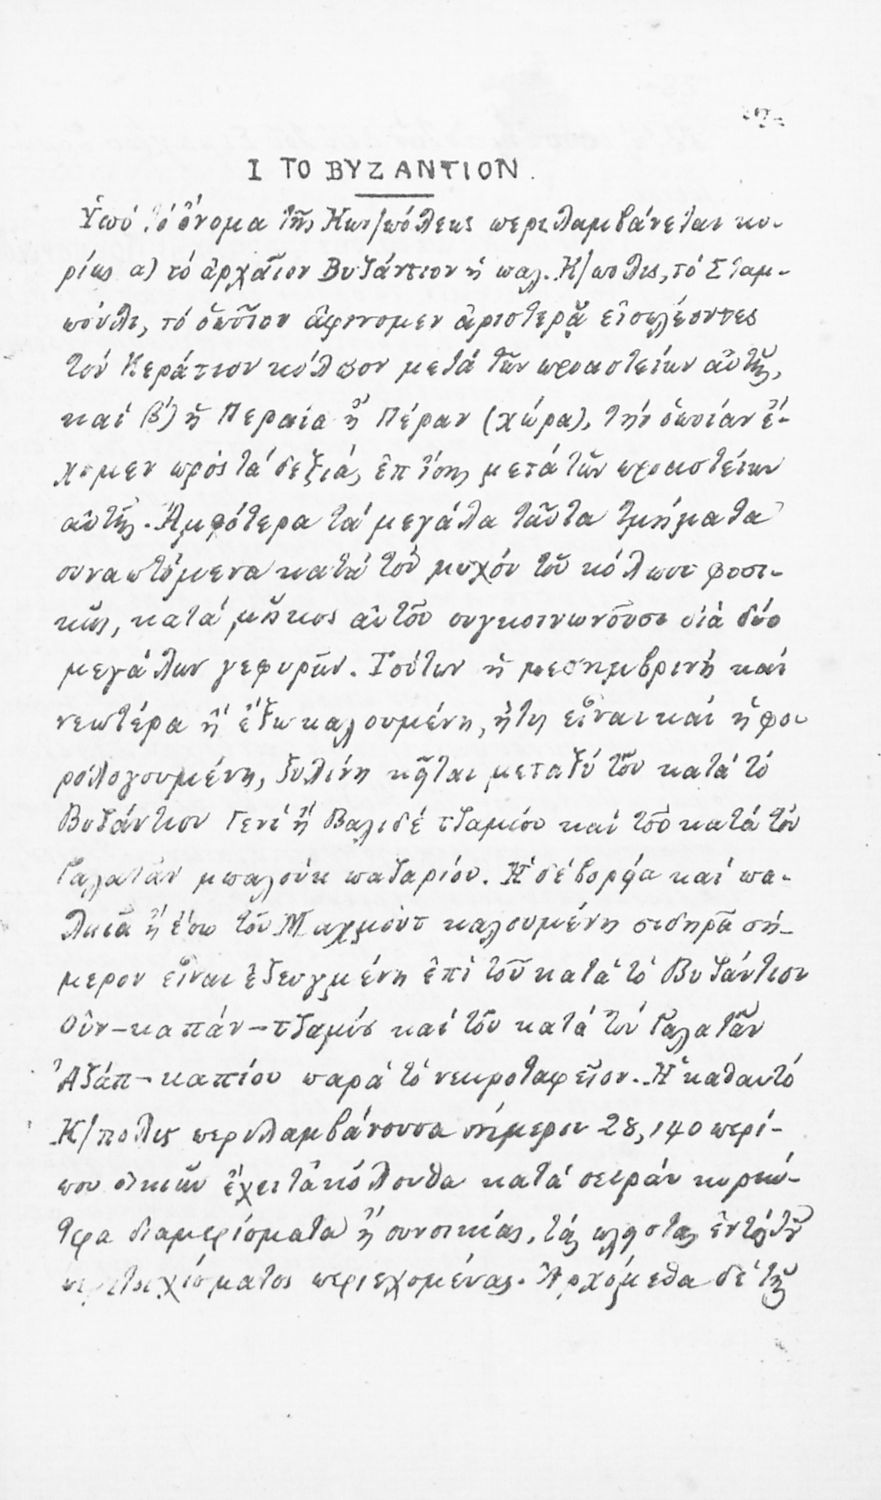 Ι ΤΟ ΒΥΖΑΝΤΙΟΝ.
Ὑπό τό ὄνομα τῆς Κων/πόλεως περιλαμβάνεται κυ-
ρίως α) τό ἀρχαῖον Βυζάντιον ἤ παλ. Κ/πολις, τό Σταμ-
πούλι, τό ὁποῖον ἀφίνομεν ἀριστερᾷ εἰσπλέοντες
τόν Κεράτιον κόλπον μετά τῶν προαστείων αὐτῆς,
καί β') ἡ Περαία ἤ Πέραν (χώρα), τήν ὁποίαν ἔ-
χομεν πρός τά δεξιά, ἐπίσης μετά τῶν προαστείων
αὐτῆς. Ἀμφότερα τά μεγάλα ταῦτα τμήματα
συναπτόμενα κατά τόν μυχόν τοῦ κόλπου φυσι-
κῶς, κατά μῆκος αὐτοῦ συγκοινωνοῦσι διά δύο
μεγάλων γεφυρῶν. Τούτων ἡ μεσημβρινή καί
νεωτέρα ἤ ἔξω καλουμένη, ἥτις εἶναι καί ἡ φο-
ρολογουμένη, ξυλίνη κεῖται μεταξύ τοῦ κατά τό
Βυζάντιον Γενί ἤ Βαλιδέ τζαμίου καί τοῦ κατά τόν
Γαλατᾶν μπαλούκ παζαρίου. Ἡ δέ βορεία καί πα-
λαιά ἤ ἔσω τοῦ Μαχμούτ καλουμένη σιδηρᾶ σή-
μερον εἶναι ἐζευγμένη ἐπί τοῦ κατά τό Βυζάντιον
Οὐν-καπάν-τζαμίς καί τοῦ κατά τόν Γαλατᾶν
Ἀζάπ-καπίου παρά τό νεκροταφεῖον. Ἡ καθαυτό
Κ/πολις περιλαμβάνουσα σήμερον 28,140 περί-
που οἰκιῶν ἔχει τά κόλουθα κατά σειράν κυριώ-
τερα διαμερίσματα ἤ συνοικίας, τάς πλείστας ἐντός τοῦ
περιτειχίσματος περιεχομένας. Ἀρχόμεθα δέ τῆς